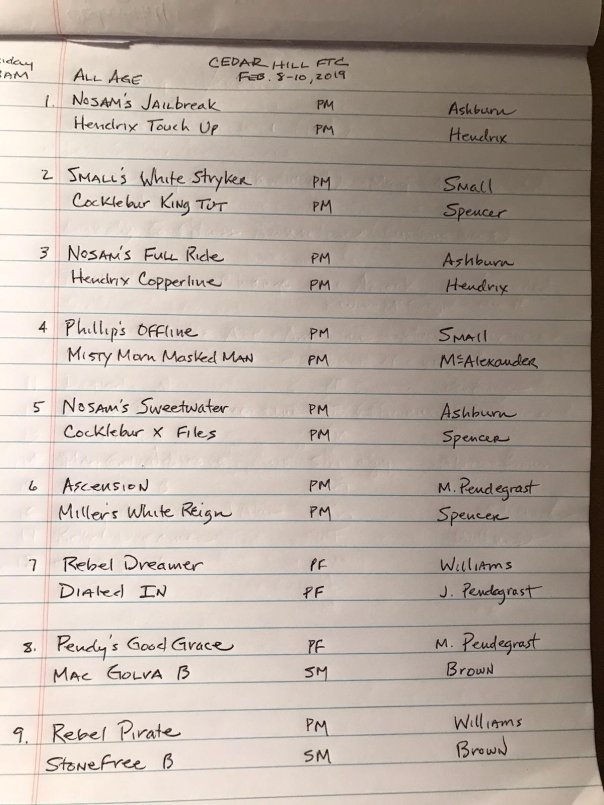 CEDAR HILL FTC
8AM ALL AGE FEB. 8-10, 2019
1. NOSAM'S JAILBREAK PM Ashburn
Hendrix Touch Up PM Hendrix
2 SMALL'S White Stryker PM Small
Cocklebur King TUT PM Spencer
3 NOSAM'S FULL Ride PM Ashburn
Hendrix Copperline PM Hendrix
4 Phillip's OFFline PM SMAll
MISTY Morn Masked MAN PM McAlexander
5 NOSAM'S Sweetwater PM Ashburn
Cocklebur X Files PM Spencer
6 ASCENSION PM M. Pendegrast
Miller's White Reign PM Spencer
7 Rebel Dreamer PF Williams
Dialed IN PF J. Pendegrast
8. Pendy's Good Grace PF M. Pendegrast
MAC GOLVA B SM Brown
9. Rebel Pirate PM Williams
Stonefree B SM Brown